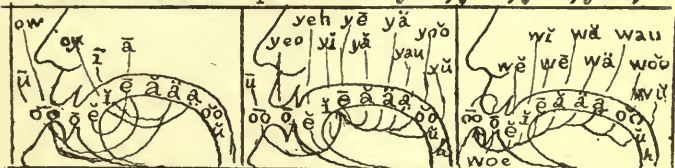 ow
oy ī ā
ū
ōō ō ĕ ĭ ē ă ä ạ ŏŏ ŭ
yeh yē yä
yeo yĭ yă yau yŏŏ
ū yŭ
ōō ō ĕ ĭ ē ă ä ạ ŏŏ ŭ h
wĭ wă wau
wĕ wē wä wŏŏ
wŭ
ōō ō ĕ ĭ ē ă ä ạ ŏŏ ŭ h
woe